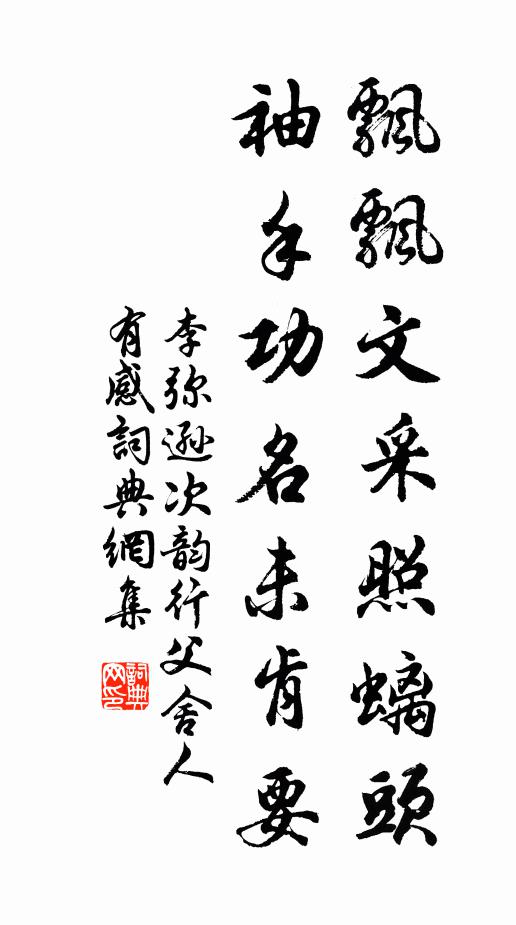 飄飄文采照螭頭
袖手功名未肯要
李弥遜次韵行父舍人
有感詞典網集
詞典
网印